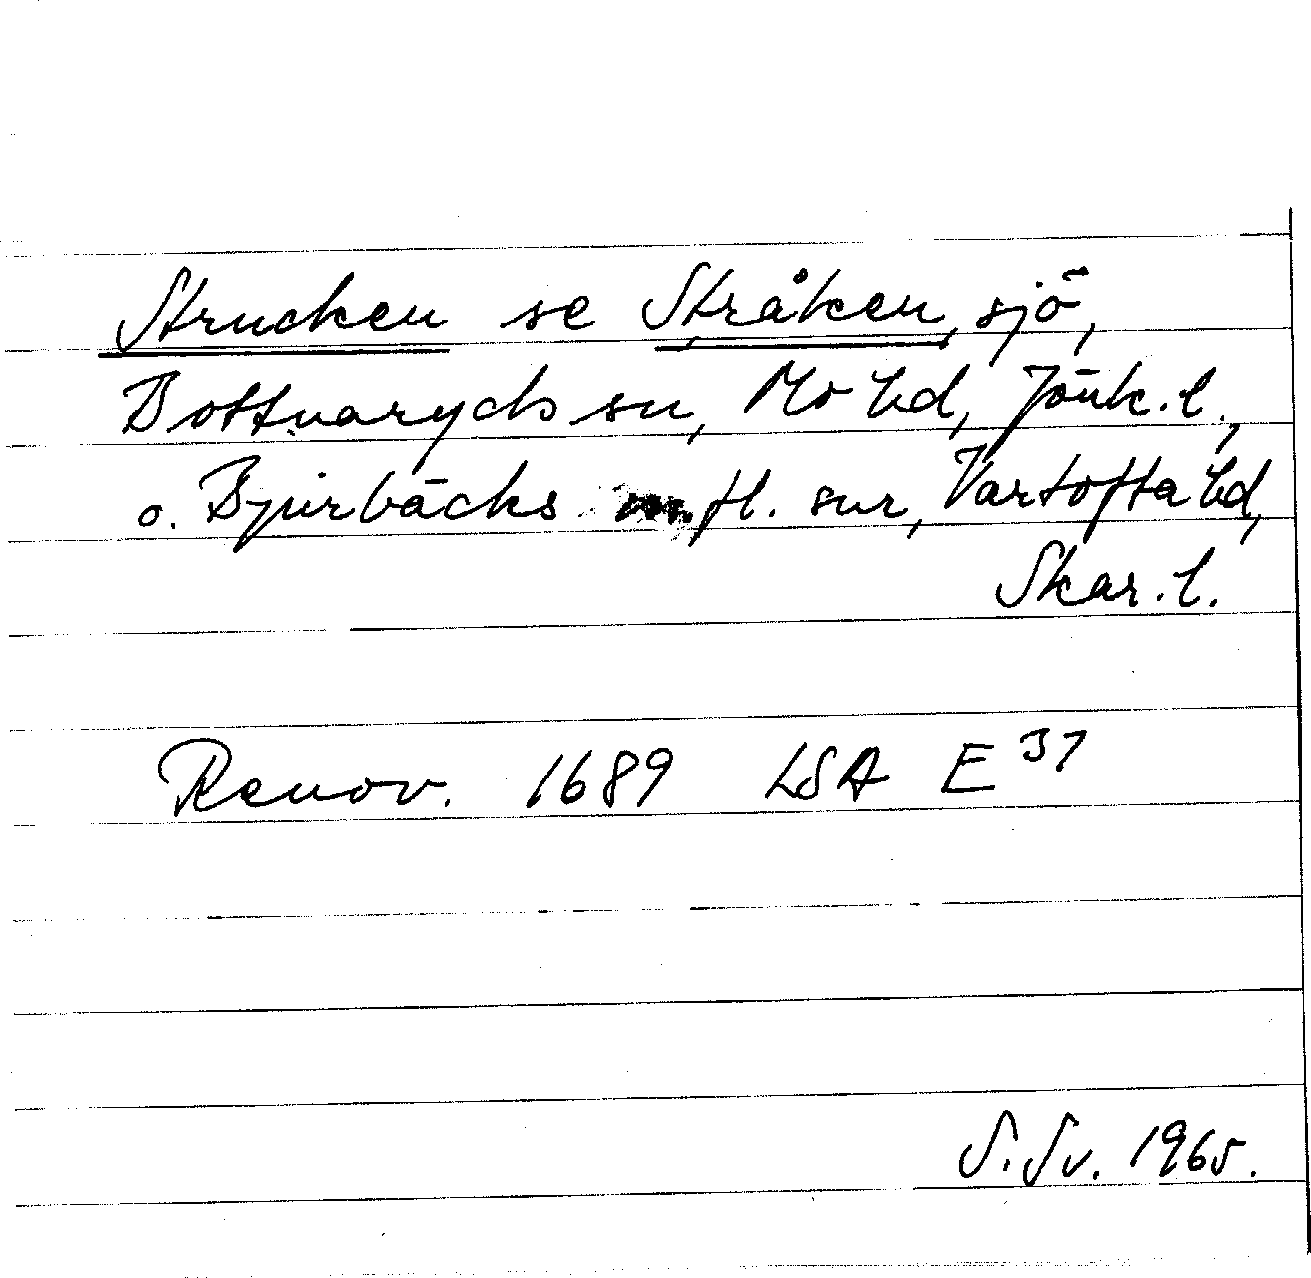 Strucken se Stråken, sjö,
Bottnaryds sn, Mo hd, Jönk.l.,
o. Bjurbäcks m.fl. snr, Vartofta hd,
Skar.l.
Renov. 1689 LSA E 37
S.Sv. 1965.